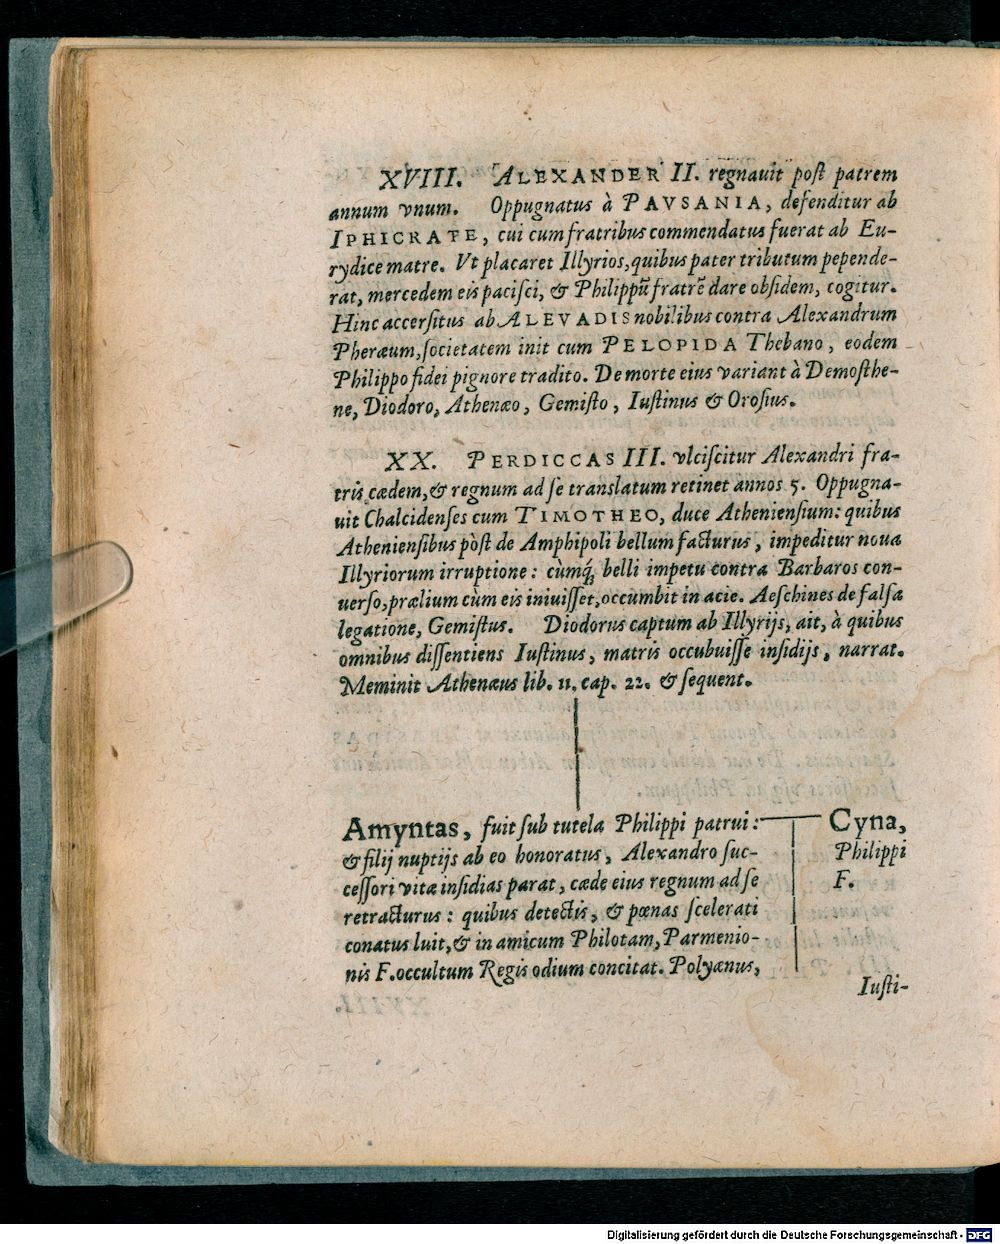 XVIII. ALEXANDER II. regnauit post patrem
annum vnum. Oppugnatus à PAVSANIA, defenditur ab
IPHICRATE, cui cum fratribus commendatus fuerat ab Eu-
rydice matre. Vt placaret Illyrios, quibus pater tributum pepende-
rat, mercedem eis pacisci, & Philippū fratrē dare obsidem, cogitur.
Hinc accersitus ab ALEVADIS nobilibus contra Alexandrum
Pheræum, societatem init cum PELOPIDA Thebano, eodem
Philippo fidei pignore tradito. De morte eius variant à Demosthe-
ne, Diodoro, Athenæo, Gemisto, Iustinus & Orosius.
XX. PERDICCAS III. vlciscitur Alexandri fra-
tris cædem, & regnum ad se translatum retinet annos 5. Oppugna-
uit Chalcidenses cum TIMOTHEO, duce Atheniensium: quibus
Atheniensibus pòst de Amphipoli bellum facturus, impeditur noua
Illyriorum irruptione: cùmq́ belli impetu contra Barbaros con-
uerso, prælium cùm eis iniuisset, occumbit in acie. Aeschines de falsa
legatione, Gemistus. Diodorus captum ab Illyrijs, ait, à quibus
omnibus dissentiens Iustinus, matris occubuisse insidijs, narrat.
Meminit Athenæus lib. 11. cap. 22. & sequent.
Amyntas, fuit sub tutela Philippi patrui:
& filij nuptijs ab eo honoratus, Alexandro suc-
cessori vitæ insidias parat, cæde eius regnum ad se
retracturus: quibus detectis, & pœnas scelerati
conatus luit, & in amicum Philotam, Parmenio-
nis F. occultum Regis odium concitat. Polyænus,
Cyna,
Philippi
F.
Iusti-
XVIII.
Digitalisierung gefördert durch die Deutsche Forschungsgemeinschaft - DFG